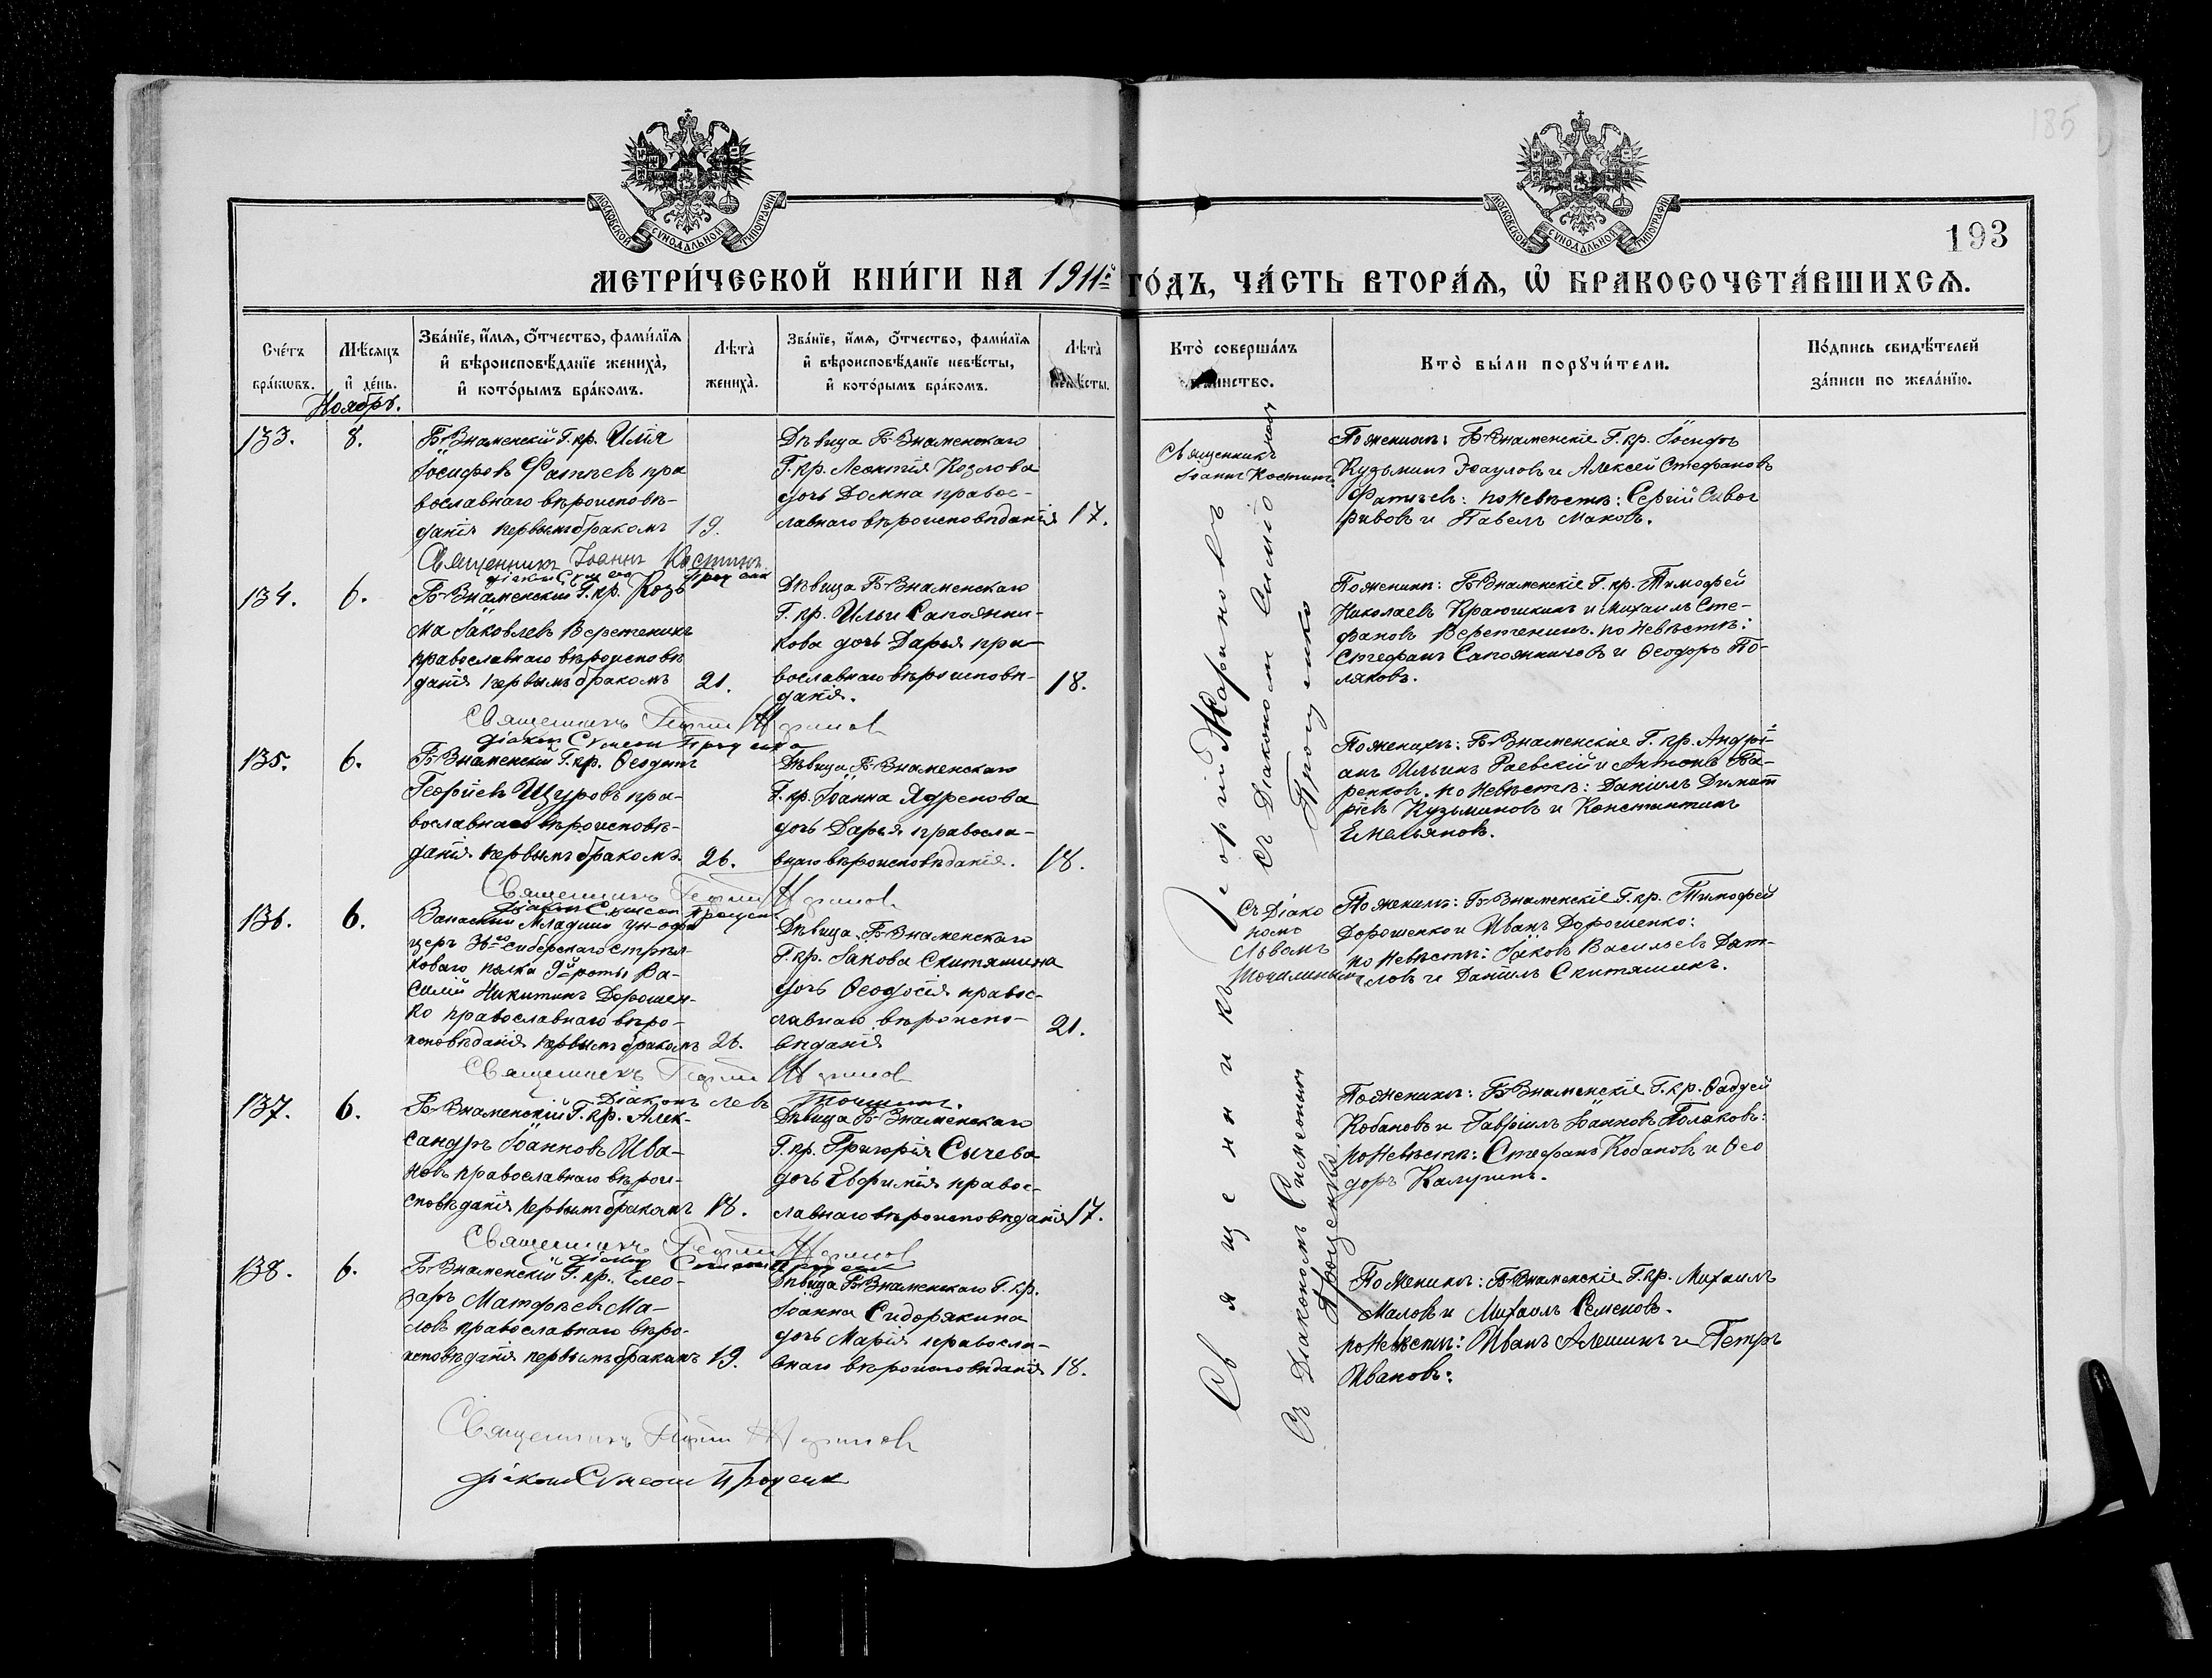 185
193
МОСКОВСКОЙ СУНОДАЛЬНОЙ ТИПОГРАФІИ
МОСКОВСКОЙ СУНОДАЛЬНОЙ ТИПОГРАФІИ
МЕТРИ́ЧЕСКОЙ КНИ́ГИ НА 1911й ГО́ДЪ, ЧА́СТЬ ВТОРА́Ѧ, Ѡ БРАКОСОЧЕТА́ВШИХСѦ.
Сче́тъ бра́кѡвъ.
Мѣ́сѧцъ и҆ де́нь.
Зва́нїе, и҆́мѧ, ѻ҆́тчество, фами́лїѧ
и҆ вѣроисповѣ́данїе жениха̀,
и҆ кото́рымъ бра́комъ.
Лѣ́та̀ жениха̀.
Зва́нїе, и҆́мѧ, ѻ҆́тчество, фами́лїѧ
и҆ вѣроисповѣ́данїе невѣ́сты,
и҆ кото́рымъ бра́комъ.
Лѣ́та̀ невѣ́сты.
Кто̀ соверша́лъ таинство.
Кто̀ бы́ли порꙋчи́тели.
По́дпись свидѣ́телей
за́писи по жела́нїю.
Ноябрь.
133.
8.
Б-Знаменскій Г. кр. Илія
Іосифовъ Фатѣевъ пра
вославнаго вѣроисповѣ-
данія первымъ бракомъ
19.
Дѣвица Б-Знаменскаго
Г. кр. Леонтія Козлова
дочь Домна правос-
лавнаго вѣроисповѣданія
17.
Священникъ
Іоаннъ Костинъ.
По женихѣ: Б-Знаменскіе Г. кр. Іосифъ
Кузьминъ и Алексей Стефановъ
Фатѣевъ: по невѣстѣ: Сергій
и Павелъ Маковъ.
Священникъ Іоаннъ Костинъ
134.
6.
Б-Знаменскій Г. кр. Козь
ма Іаковлевъ Веретенинъ
православнаго вѣроисповѣ
данія первымъ бракомъ
21.
Дѣвица Б-Знаменскаго
Г. кр. Ильи Сапожни-
кова дочь Дарья пра-
вославнаго вѣроисповѣ-
данія.
18.
По женихѣ: Б-Знаменскіе Г. кр. Тимофей
Николаевъ Краюшкинъ и Михаилъ Сте-
фановъ Веретенинъ. по невѣстѣ:
Стефанъ Сапожниковъ и Ѳеодоръ По-
ляковъ.
Священникъ Георгій Жариновъ
Діаконъ Симеонъ Проценко
135.
6.
Б-Знаменскій Г. кр.
Георгіевъ Щуровъ пра-
вославнаго вѣроисповѣ-
данія первымъ бракомъ.
26.
Дѣвица Б-Знаменскаго
Г. кр. Іоанна Ядренова
дочь Дарья правосла-
внаго вѣроисповѣданія.
18.
По женихѣ: Б-Знаменскіе Г. кр. Андрі-
анъ Ильинъ Раевскій и Антонъ
по невѣстѣ: Даніилъ Димит
ріевъ Кузьминовъ и Константинъ
Емельяновъ.
Священникъ Георгій Жариновъ
Діаконъ Симеонъ Проценко
136.
6.
Запасный Младшій ун-офи
церъ 36го Сибирскаго Стрѣл-
коваго полка 9й роты Ва-
силій Никитинъ Дорошен-
ко православнаго вѣро-
исповѣданія первымъ бракомъ
26.
Дѣвица Б-Знаменскаго
Г. кр. Іакова Скитяшина
дочь Ѳеодосія правос-
лавнаго вѣроиспо-
вѣданія
21.
Съ Діако
номъ
Львомъ
Точилинымъ
По женихѣ: Б-Знаменскіе Г. кр. Тимофей
Дорошенко и Иванъ Дорошенко:
по невѣстѣ: Іаковъ Васильевъ
и Даніилъ Скитяшинъ.
Священникъ Георгій Жариновъ
Діаконъ Левъ
137.
6.
Б-Знаменскій Г. кр. Алек-
сандръ Іоанновъ Ива-
новъ православнаго вѣрои-
сповѣданія первымъ бракомъ
18.
Дѣвица Б-Знаменскаго
Г. кр. Григорія Сычева
дочь Евфимія правос-
лавнаго вѣроисповѣданія
17.
По женихѣ: Б-Знаменскіе Г. кр. Ѳаддей
Кобановъ и Гавріилъ Іоанновъ Поляковъ:
по невѣстѣ: Стефанъ Кобановъ и Ѳео
доръ Калугинъ.
Священникъ Георгій Жариновъ
Діаконъ Симеонъ Проценко
138.
6.
Б-Знаменскій Г. кр. Елео-
заръ Матфѣевъ Ма-
ловъ православнаго вѣро-
исповѣданія первымъ бракомъ
19.
Дѣвица Б-Знаменскаго Г. кр.
Іоанна Сидорякина
дочь Марія правосла-
внаго вѣроисповѣданія
18.
По женихѣ: Б-Знаменскіе Г. кр. Михаилъ
Маловъ и Михаилъ Семеновъ.
по невѣстѣ: Иванъ Алешинъ и Петръ
Ивановъ:
Священникъ Георгій Жариновъ
Діаконъ Симеонъ Проценко
Священникъ Георгій Жариновъ
съ Діакономъ Симеономъ
Проценко
Съ Діакономъ Симеономъ
Проценко